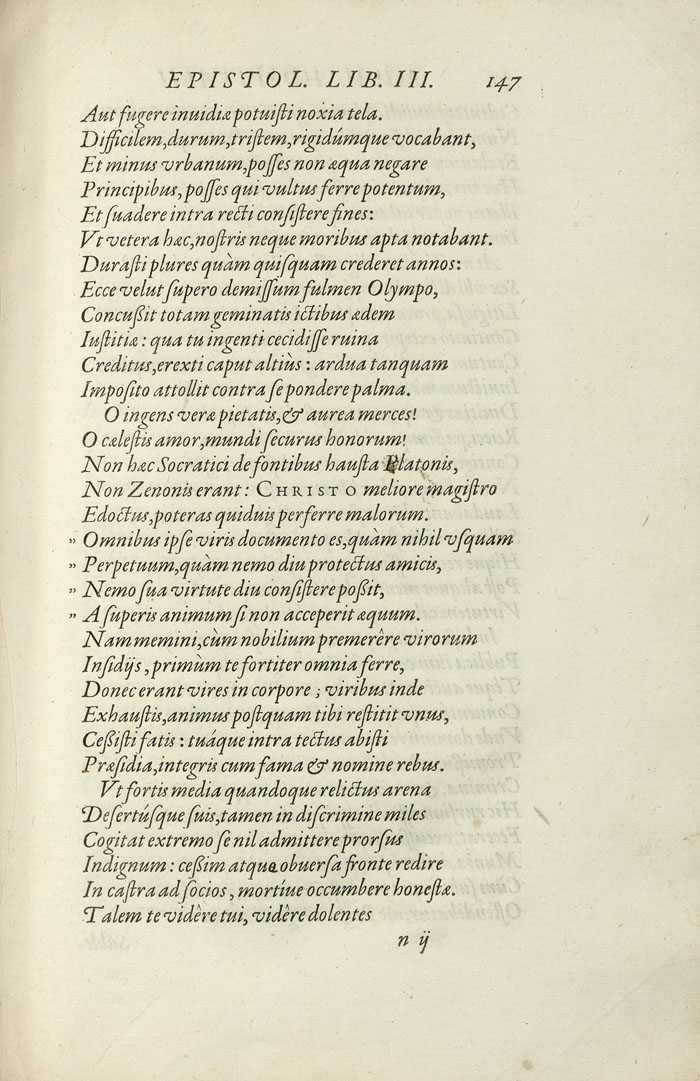 EPISTOL. LIB. III. 147
Aut fugere inuidiæ potuiſti noxia tela.
Difficilem,durum,triſtem,rigidúmque vocabant,
Et minus vrbanum,poſſes non æqua negare
Principibus, poſſes qui vultus ferre potentum,
Et ſuadere intra recti conſiſtere fines:
Vt vetera hæc,noſtris neque moribus apta notabant.
Duraſti plures quàm quiſquam crederet annos:
Ecce velut ſupero demiſſum fulmen Olympo,
Concußit totam geminatis ictibus ædem
Iuſtitiæ: qua tu ingenti cecidiſſe ruina
Creditus,erexti caput altiùs: ardua tanquam
Impoſito attollit contra ſe pondere palma.
O ingens veræ pietatis,& aurea merces!
O cæleſtis amor,mundi ſecurus honorum!
Non hæc Socratici de fontibus hauſta Platonis,
Non Zenonis erant: CHRISTO meliore magiſtro
Edoctus,poteras quiduis perferre malorum.
" Omnibus ipſe viris documento es,quàm nihil vſquam
" Perpetuum,quàm nemo diu protectus amicis,
" Nemo ſua virtute diu conſiſtere poßit,
" A ſuperis animum ſi non acceperit æquum.
Nam memini,cùm nobilium premerêre virorum
Inſidijs, primùm te fortiter omnia ferre,
Donec erant vires in corpore ; viribus inde
Exhauſtis,animus poſtquam tibi reſtitit vnus,
Ceßiſti fatis: tuáque intra tectus abiſti
Præſidia,integris cum fama & nomine rebus.
Vt fortis media quandoque relictus arena
Deſertúſque ſuis,tamen in diſcrimine miles
Cogitat extremo ſe nil admittere prorſus
Indignum: ceßim atque obuerſa fronte redire
In caſtra ad ſocios, mortíue occumbere honeſtæ.
Talem te vidêre tui, vidêre dolentes
n ij